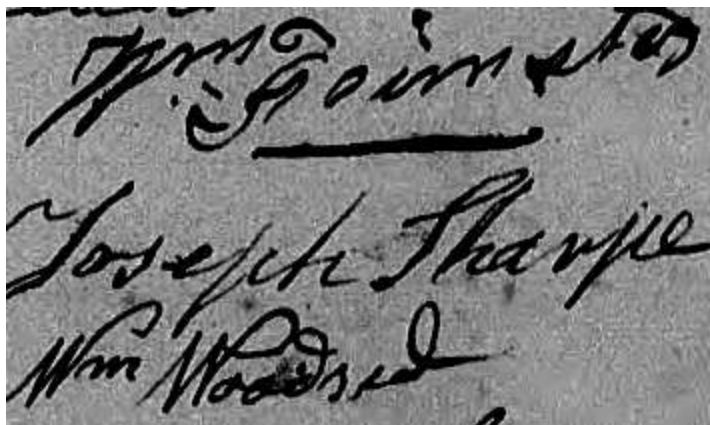 Wm Foimster
Joseph Sharpe
Wm Woodsed